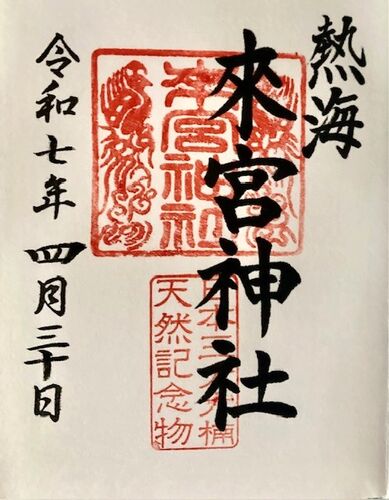 熱海
來宮神社
来宮神社
日本三大樟楠
天然記念物
令和七年四月三十日